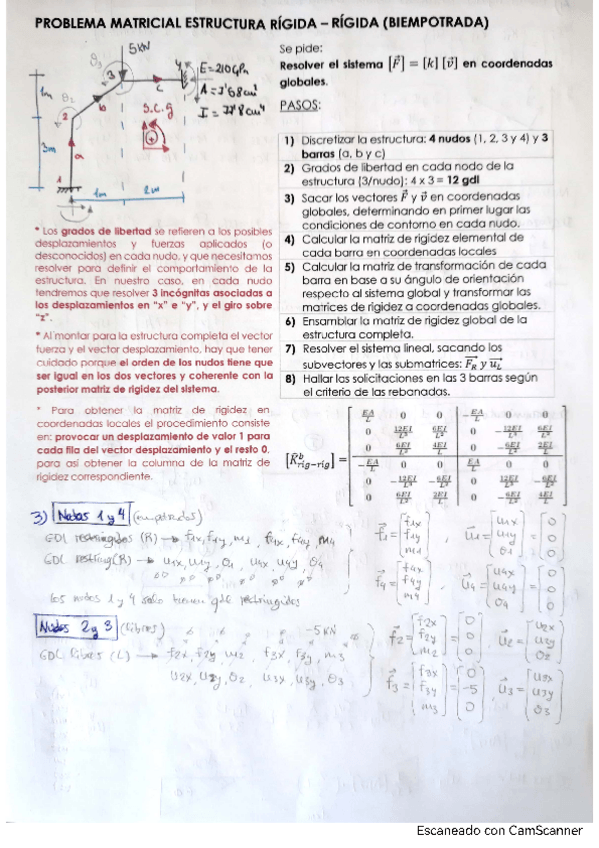 PROBLEMA MATRICIAL ESTRUCTURA RÍGIDA – RÍGIDA (BIEMPOTRADA)
5KN
3
4
E=210GPa
A=
I=
cm⁴
2
b
c
S.C.G
a
1
1m
3m
1m
2m
Se pide:
Resolver el sistema [F⃗] = [k] [v⃗] en coordenadas
globales.
PASOS:
1) Discretizar la estructura: 4 nudos (1, 2, 3 y 4) y 3
barras (a, b y c)
2) Grados de libertad en cada nodo de la
estructura (3/nudo): 4 x 3 = 12 gdl
3) Sacar los vectores F⃗ y v⃗ en coordenadas
globales, determinando en primer lugar las
condiciones de contorno en cada nudo.
4) Calcular la matriz de rigidez elemental de
cada barra en coordenadas locales
5) Calcular la matriz de transformación de cada
barra en base a su ángulo de orientación
respecto al sistema global y transformar las
matrices de rigidez a coordenadas globales.
6) Ensamblar la matriz de rigidez global de la
estructura completa.
7) Resolver el sistema lineal, sacando los
subvectores y las submatrices: F_R y u_L
8) Hallar las solicitaciones en las 3 barras según
el criterio de las rebanadas.
* Los grados de libertad se refieren a los posibles
desplazamientos y fuerzas aplicados (o
desconocidos) en cada nudo, y que necesitamos
resolver para definir el comportamiento de la
estructura. En nuestro caso, en cada nudo
tendremos que resolver 3 incógnitas asociadas a
los desplazamientos en "x" e "y", y el giro sobre
"z".
* Al montar para la estructura completa el vector
fuerza y el vector desplazamiento, hay que tener
cuidado porque el orden de los nudos tiene que
ser igual en los dos vectores y coherente con la
posterior matriz de rigidez del sistema.
* Para obtener la matriz de rigidez en
coordenadas locales el procedimiento consiste
en: provocar un desplazamiento de valor 1 para
cada fila del vector desplazamiento y el resto 0,
para así obtener la columna de la matriz de
rigidez correspondiente.
[K^b_rig-rig] =
EA/L 0 0 -EA/L 0 0
0 12EI/L³ 6EI/L² 0 -12EI/L³ 6EI/L²
0 6EI/L² 4EI/L 0 -6EI/L² 2EI/L
-EA/L 0 0 EA/L 0 0
0 -12EI/L³ -6EI/L² 0 12EI/L³ -6EI/L²
0 6EI/L² 2EI/L 0 -6EI/L² 4EI/L
3) Nodos 1 y 4 (empotrados)
GDL restringidos (R) → f1x, f1y, m1, f4x, f4y, m4
GDL restring (R) → u1x, u1y, θ1, u4x, u4y, θ4
los nodos 1 y 4 solo tienen gdl restringidos
f⃗1 = [f1x f1y m1], u⃗1 = [u1x u1y θ1] = [0 0 0]
f⃗4 = [f4x f4y m4] u⃗4 = [u4x u4y θ4] = [0 0 0]
Nudos 2 y 3 (libres) -5KN
GDL libres (L) → f2x, f2y, m2, f3x, f3y, m3
u2x, u2y, θ2, u3x, u3y, θ3
f⃗2 = [f2x f2y m2] = [0 0 0] u⃗2 = [u2x u2y θ2]
f⃗3 = [f3x f3y m3] = [0 -5 0] u⃗3 = [u3x u3y θ3]
Escaneado con CamScanner